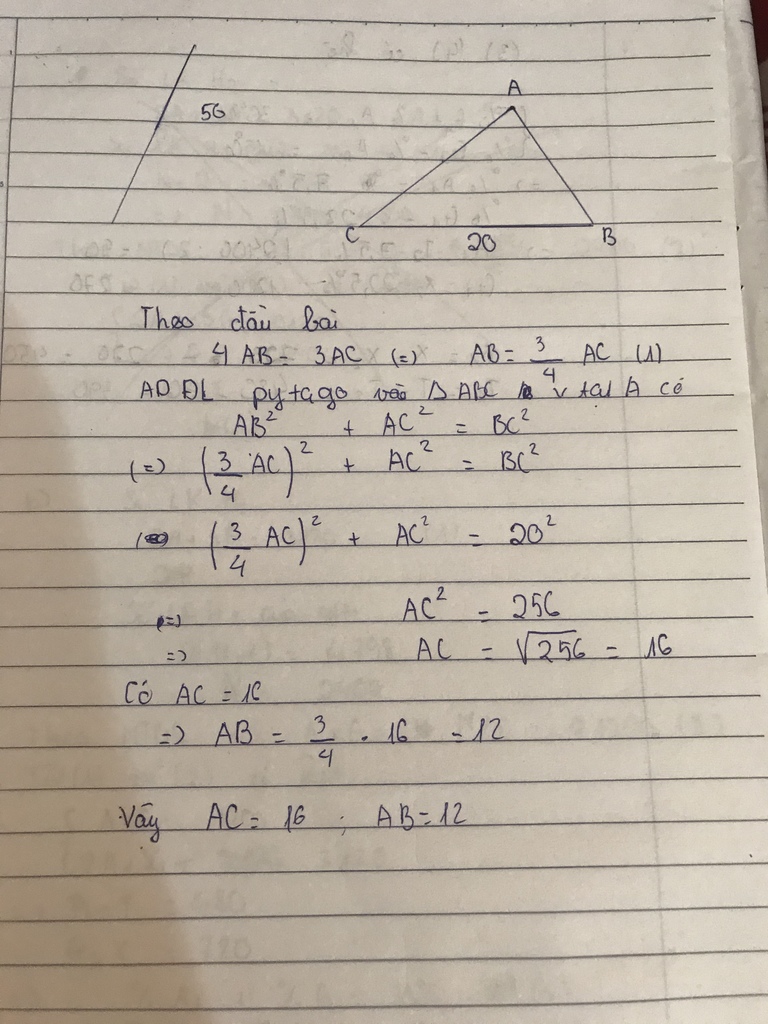 56
A
C
B
20
Theo đầu bài
4 AB = 3AC (=) = AB = 3/4 AC (1)
AD ĐL pytago vào Δ ABC v tại A có
AB² + AC² = BC²
(=) (3/4 AC)² + AC² = BC²
(3/4 AC)² + AC² = 20²
(=) AC² = 256
=) AC = √256 = 16
Có AC = 16
=) AB = 3/4 . 16 = 12
Vậy AC = 16 ; AB = 12